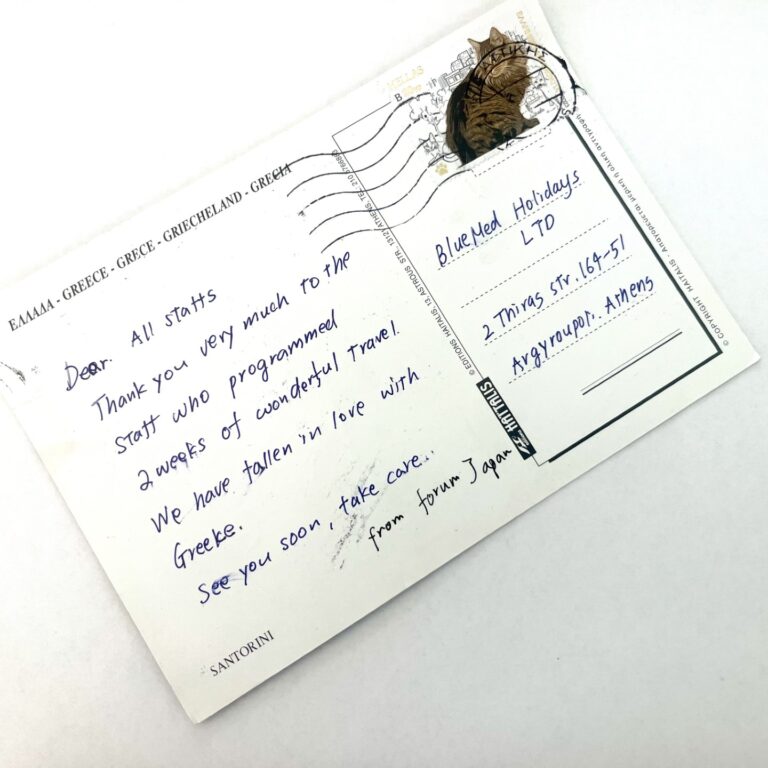 ΕΛΛΑΔΑ - GREECE - GRECE - GRIECHELAND - GRECIA
Dear. All staffs
Thank you very much to the
staff who programmed
2 weeks of wonderful travel.
We have fallen in love with
Greeke.
See you soon, take care..
from forum Japan
SANTORINI
© EDITIONS HAITALIS, 13, ASTROUS STR. 13121 ATHENS, TEL. 210
HAITALIS
HELLAS
B
BlueMed Holidays
LTD
2 Thiras str. 164-51
Argyroupoli, Athens
© COPYRIGHT HAITALIS - Απαγορεύεται μερική ή ολική αντιγραφή